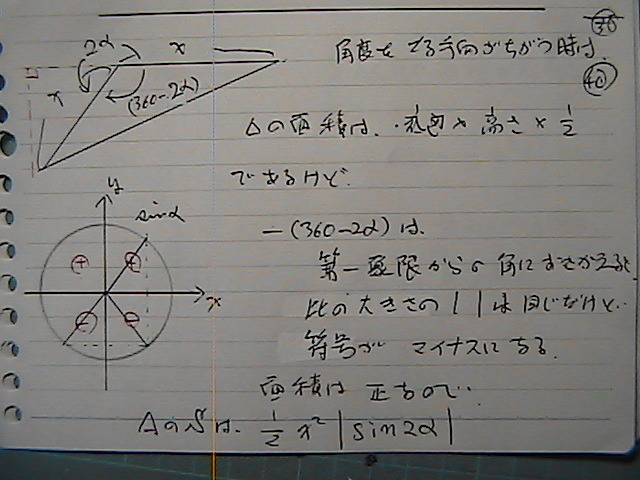 38
40
2α
x
x
(360-2α)
角度をとる方向がちがう時は
△の面積は、底辺×高さ×1/2
であるけど
-(360-2α)は、
第一象限からの角におきかえると
比の大きさの| |は同じだけど、
符号が マイナスになる。
面積は 正なので、
△のSは、 1/2 x² |sin2α|
y
sinα
x
+
+
-
-